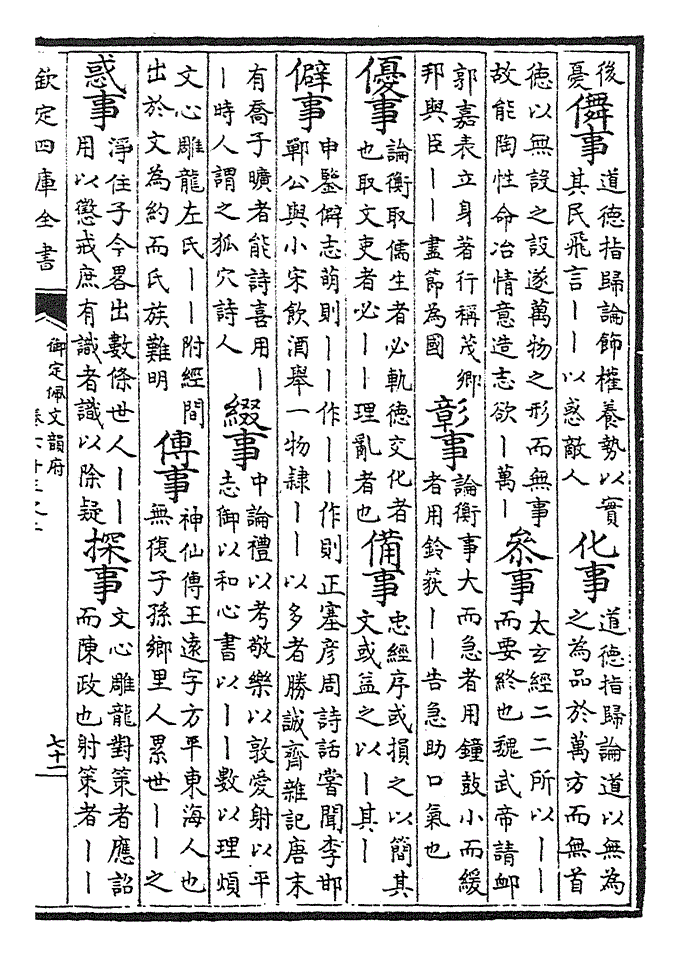 後憂儛事道德指歸論飾權養勢以實其民飛言｜｜以惑敵人化事道德指歸論道以無為之為品於萬方而無首
徳以無設之設遂萬物之形而無事故能陶性命冶情意造志欲｜萬｜叅事太𤣥經二二所以｜｜而要終也魏武帝請䘏
郭嘉表立身著行稱茂鄉邦與臣｜｜盡節為國彰事論衡事大而急者用鐘鼓小而緩者用鈴荻｜｜告急助口氣也
優事論衡取儒生者必軌徳交化者也取文吏者必｜｜理亂者也備事忠經序或損之以簡其文或益之以｜其｜
僻事申鑒僻志萌則｜｜作｜｜作則正塞彦周詩話嘗聞李邯鄲公與小宋飲酒舉一物隷｜｜以多者勝誠齋雜記唐末
有喬子曠者能詩喜用｜｜時人謂之狐穴詩人綴事中論禮以考敬樂以敦愛射以平志御以和心書以｜｜數以理煩
文心雕龍左氏｜｜附經間出於文為約而氏族難明傳事神仙傳王遠字方平東海人也無復子孫鄉里人累世｜｜之
惑事淨住子今畧出數條世人｜｜用以懲戒庶有識者識以除疑探事文心雕龍對策者應詔而陳政也射策者｜｜
欽定四庫全書
御定佩文韻府
七十二